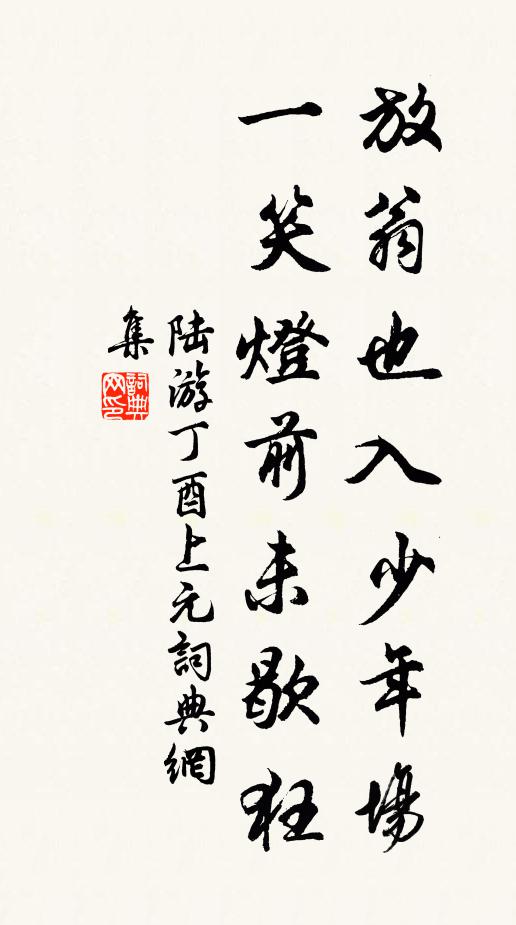 放翁也入少年場
一笑燈前未歇狂
陆游丁酉上元詞典網
集
詞典网印